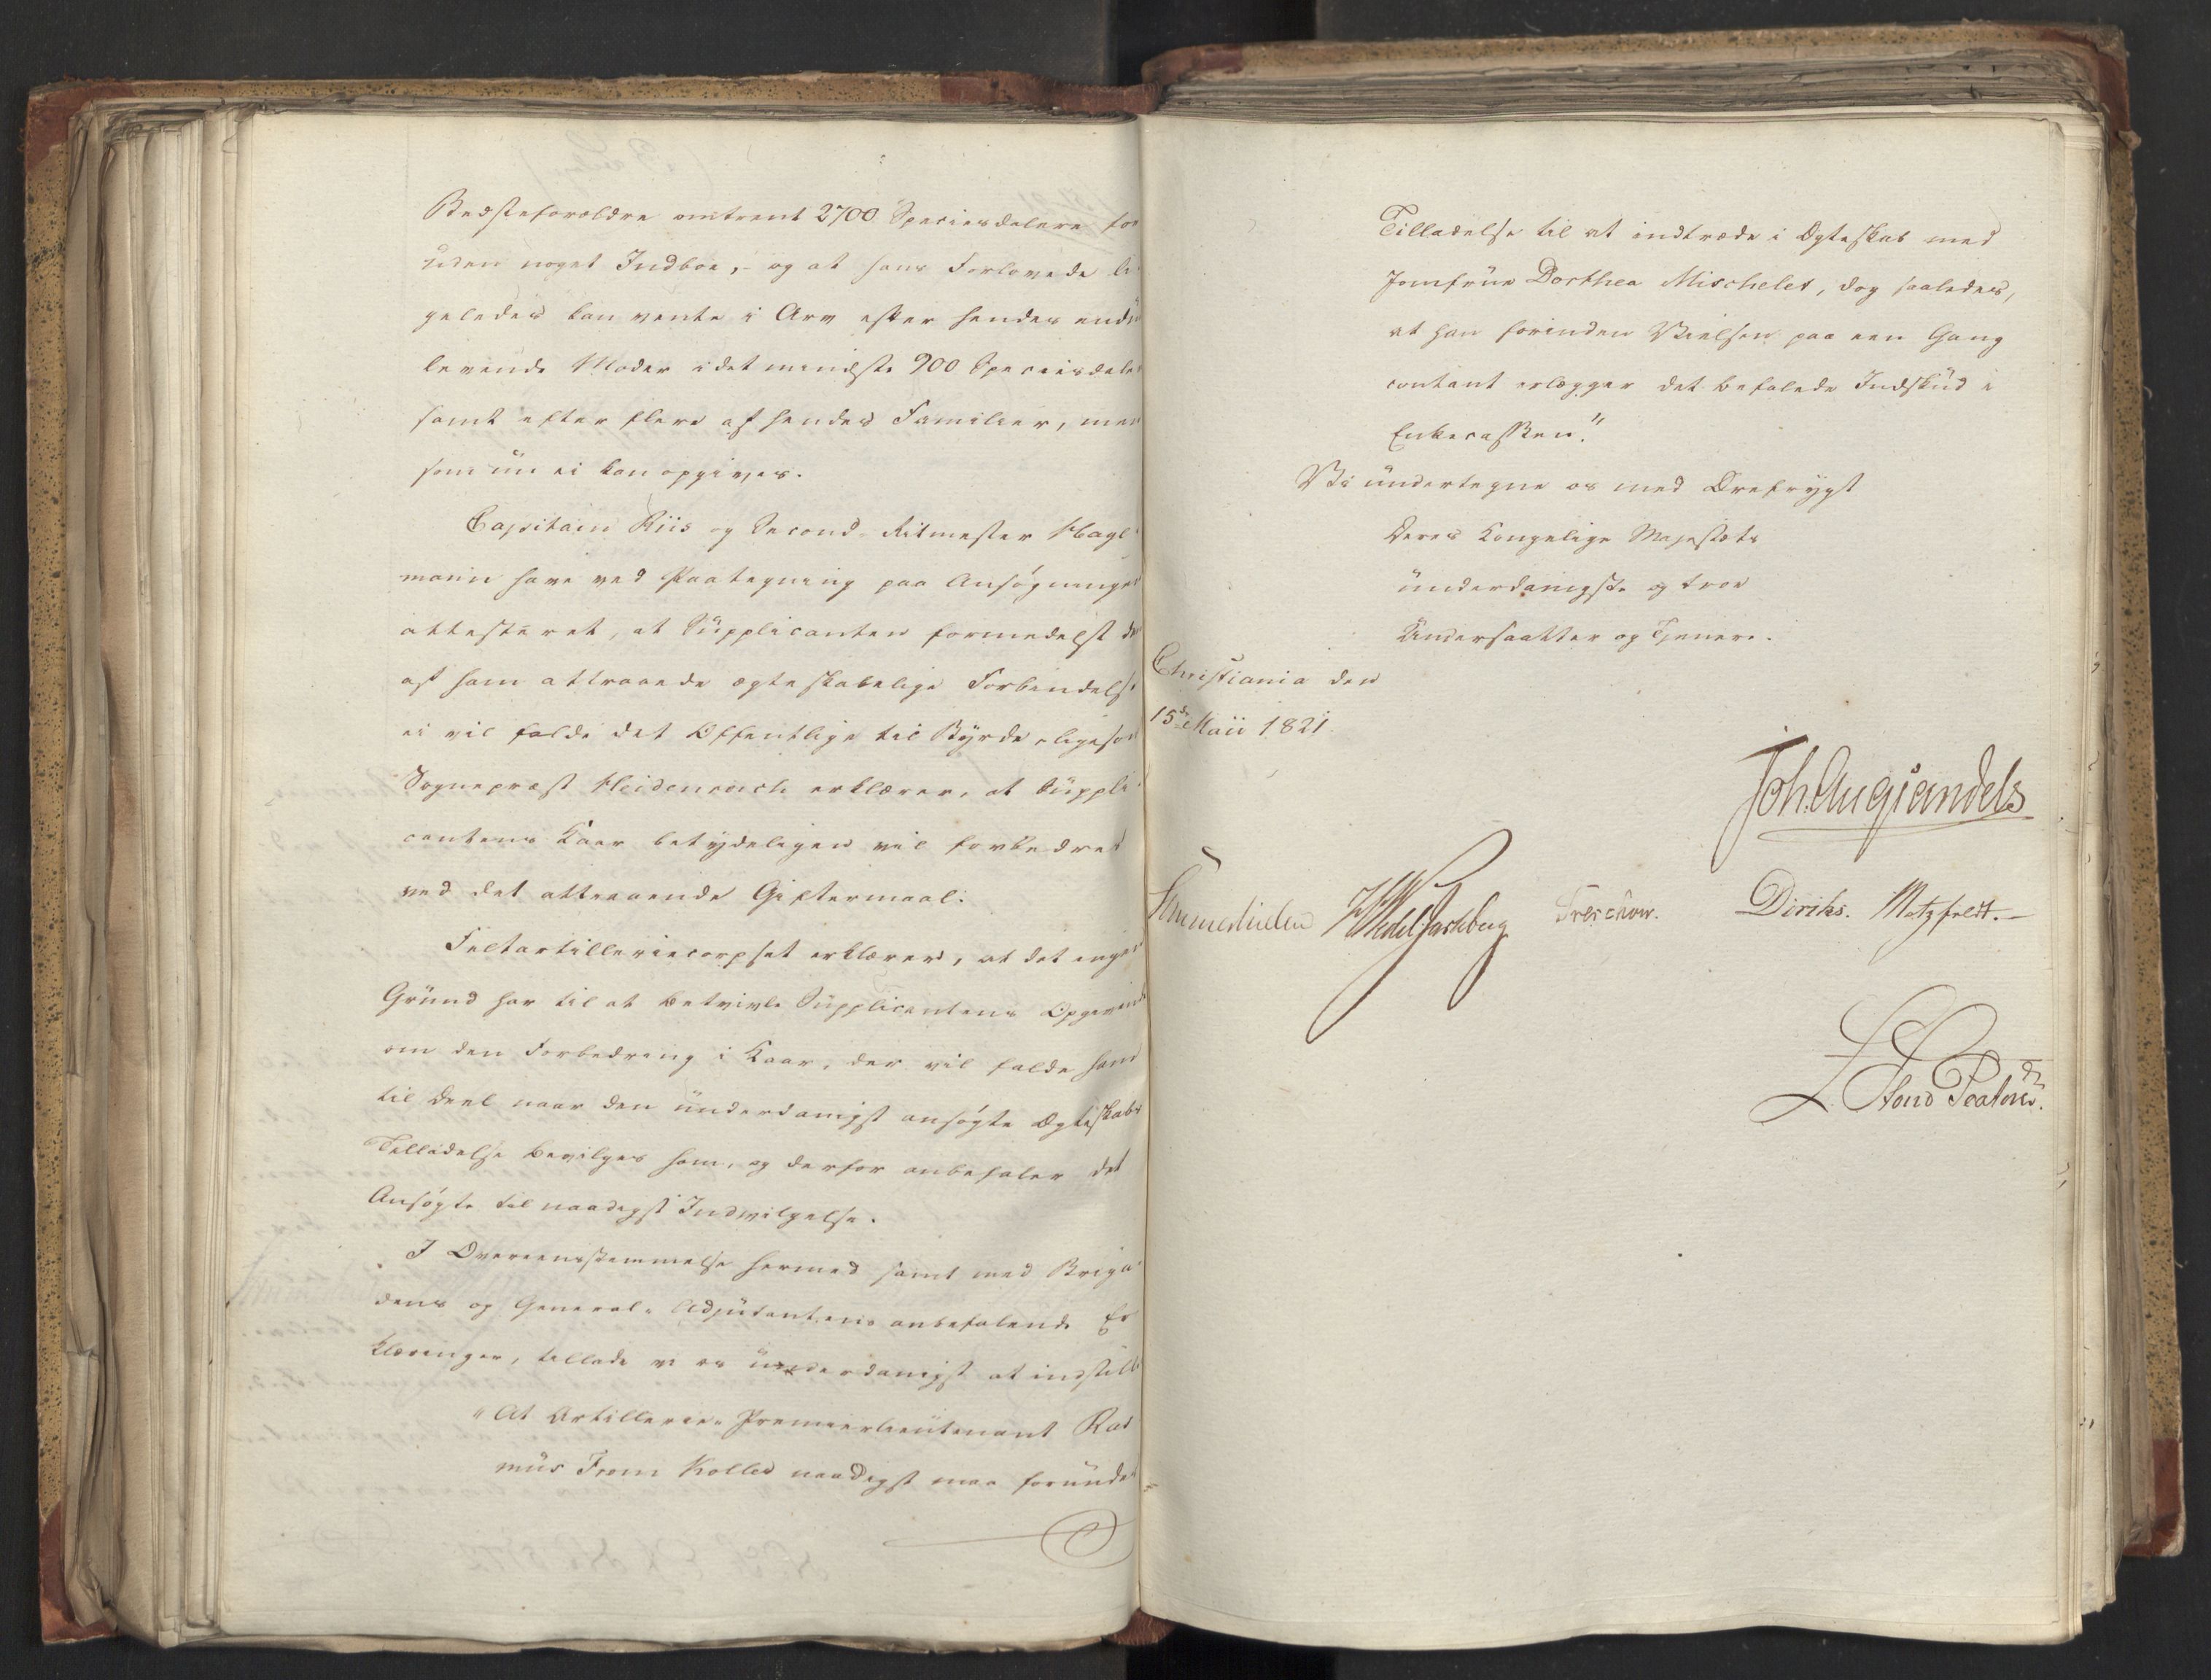 Bedsteforældre omtrent 2700 Speciesdalere for
uden noget Indboe, - og at hans Forlovede li-
geledes kan vente i Arv efter hendes endnu
levende Moder i det mindste 900 Speciesdaler
samt efter flere af hendes Familier, men
som nu ei kan opgives.
Capitain Riis og Second-Ritmester Hagl-
mann have ved Paategning paa Ansøgningen
attesteret, at Supplicanten formedelst den
af ham attraaede ægteskabelige Forbindelse
ei vil falde det Offentlige til Byrde, ligesom
Sognepræst Heidenreich erklærer, at Suppli-
cantens Kaar betydeligen vil forbedres
ved det attraaende Giftermaal.
Feltartilleriecorpset erklærer, at det ingen
Grund har til at betvivle Supplicantens Opgivende
om den Forbedring i Kaar, der vil falde ham
til Deel naar den underdanigst ansøgte Ægteskabs
Tilladelse bevilges ham, og derfor anbefaler det
Ansøgte til naadigst Indvilgelse.
I Overeensstemmelse hermed samt med Briga-
dens og General-Adjutantens anbefalende Er-
klæringer, tillade vi os underdanigst at indstille
"At Artillerie-Premierlieutenant Ras-
mus From Koller naadigst maa forundes
Tilladelse til at indtræde i Ægteskab med
Jomfrue Dorthea Mischelet, dog saaledes,
at han forinden Vielsen paa een Gang
contant erlægger det befalede Indskud i
Enkecassen."
Vi undertegne os med Ærefrygt
Deres Kongelige Majestæts
underdanigste og troe
Undersaatter og Tjenere.
Christiania den
15de Maii 1821.
Joh. Aug Sandels
Sommerhielm HWedel Jarlsberg Treschow. Diriks. Motzfeldt.